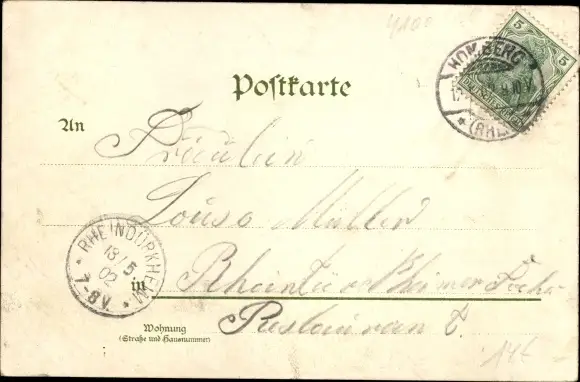 4100
5 5
HOMBERG
(RHEIN)
Postkarte
An
Fräulein
Louise Müller
RHEINDÜRKHEIM
18/5
02
7-8V.
in Rheindürkheimer
Restaurant.
Wohnung
(Straße und Hausnummer)
14€